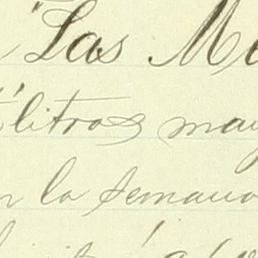 "Las M
litros may
n la semana